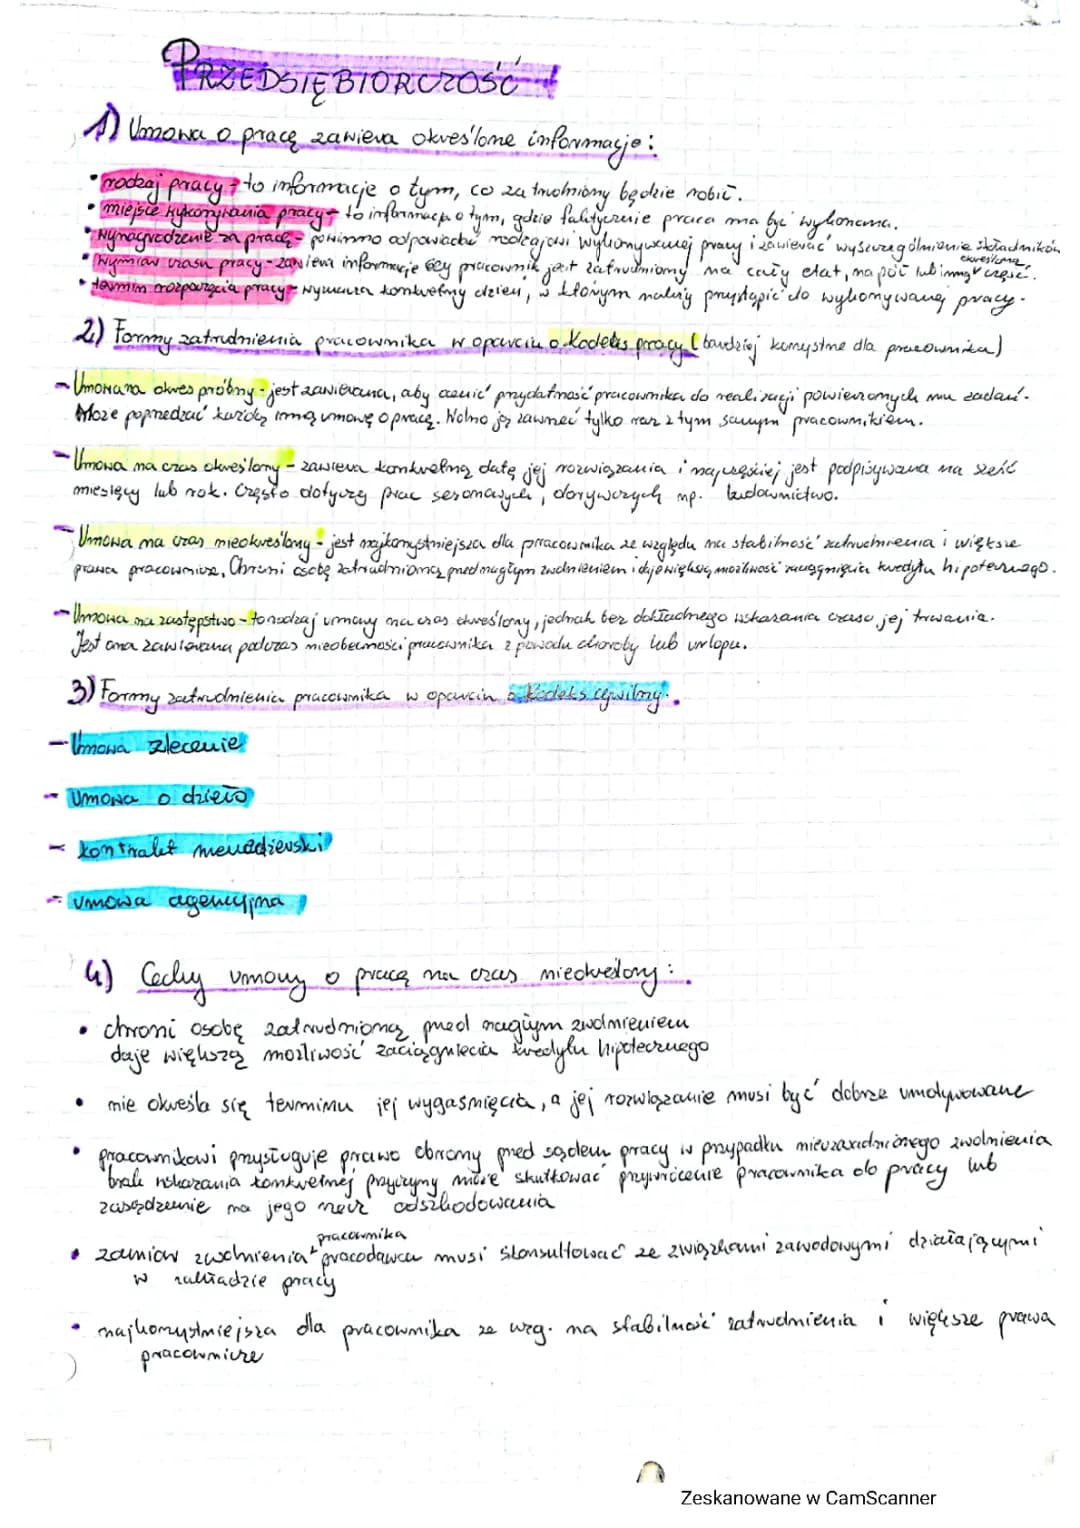 PRZEDSIĘBIORCZOŚĆ
1) Umowa o pracę zawiera określone informacje:
• rodzaj pracy - to informacje o tym, co zatrudniony będzie robić.
• miejsce wykonywania pracy - to informacja o tym, gdzie faktycznie praca ma być wykonana.
• wynagrodzenie za pracę - powinno odpowiadać rodzajowi wykonywanej pracy i zawierać wyszczególnienie składników
• wymiar czasu pracy - zawiera informacje czy pracownik jest zatrudniony na cały etat, na pół lub inną określoną część.
• termin rozpoczęcia pracy - wyznacza konkretny dzień, w którym należy przystąpić do wykonywanej pracy.
2) Formy zatrudnienia pracownika w oparciu o Kodeks pracy (bardziej korzystne dla pracownika)
- Umowa na okres próbny - jest zawierana, aby ocenić przydatność pracownika do realizacji powierzonych mu zadań.
Może poprzedzać każdą inną umowę o pracę. Wolno ją zawrzeć tylko raz z tym samym pracownikiem.
- Umowa na czas określony - zawiera konkretną datę jej rozwiązania i najczęściej jest podpisywana na sześć
miesięcy lub rok. Często dotyczy prac sezonowych, dorywczych np. budownictwo.
- Umowa na czas nieokreślony - jest najkorzystniejsza dla pracownika ze względu na stabilność zatrudnienia i większe
prawa pracownicze. Chroni osobę zatrudnioną przed nagłym zwolnieniem i daje większą możliwość zaciągnięcia kredytu hipotecznego.
- Umowa na zastępstwo - to rodzaj umowy na czas określony, jednak bez dokładnego wskazania czasu jej trwania.
Jest ona zawierana podczas nieobecności pracownika z powodu choroby lub urlopu.
3) Formy zatrudnienia pracownika w oparciu o Kodeks cywilny.
- Umowa zlecenie
- Umowa o dzieło
- kontrakt menadżerski
- umowa agencyjna
4) Cechy umowy o pracę na czas nieokreślony:
• chroni osobę zatrudnioną przed nagłym zwolnieniem
daje większą możliwość zaciągnięcia kredytu hipotecznego
• nie określa się terminu jej wygaśnięcia, a jej rozwiązanie musi być dobrze umotywowane
• pracownikowi przysługuje prawo obrony przed sądem pracy w przypadku nieuzasadnionego zwolnienia
brak wskazania konkretnej przyczyny może skutkować przywrócenie pracownika do pracy lub
zasądzenie na jego rzecz odszkodowania
• zamiar zwolnienia pracownika pracodawca musi skonsultować ze związkami zawodowymi działającymi
w zakładzie pracy
• najkorzystniejsza dla pracownika ze wzg. na stabilność zatrudnienia i większe prawa
pracownicze
Zeskanowane w CamScanner